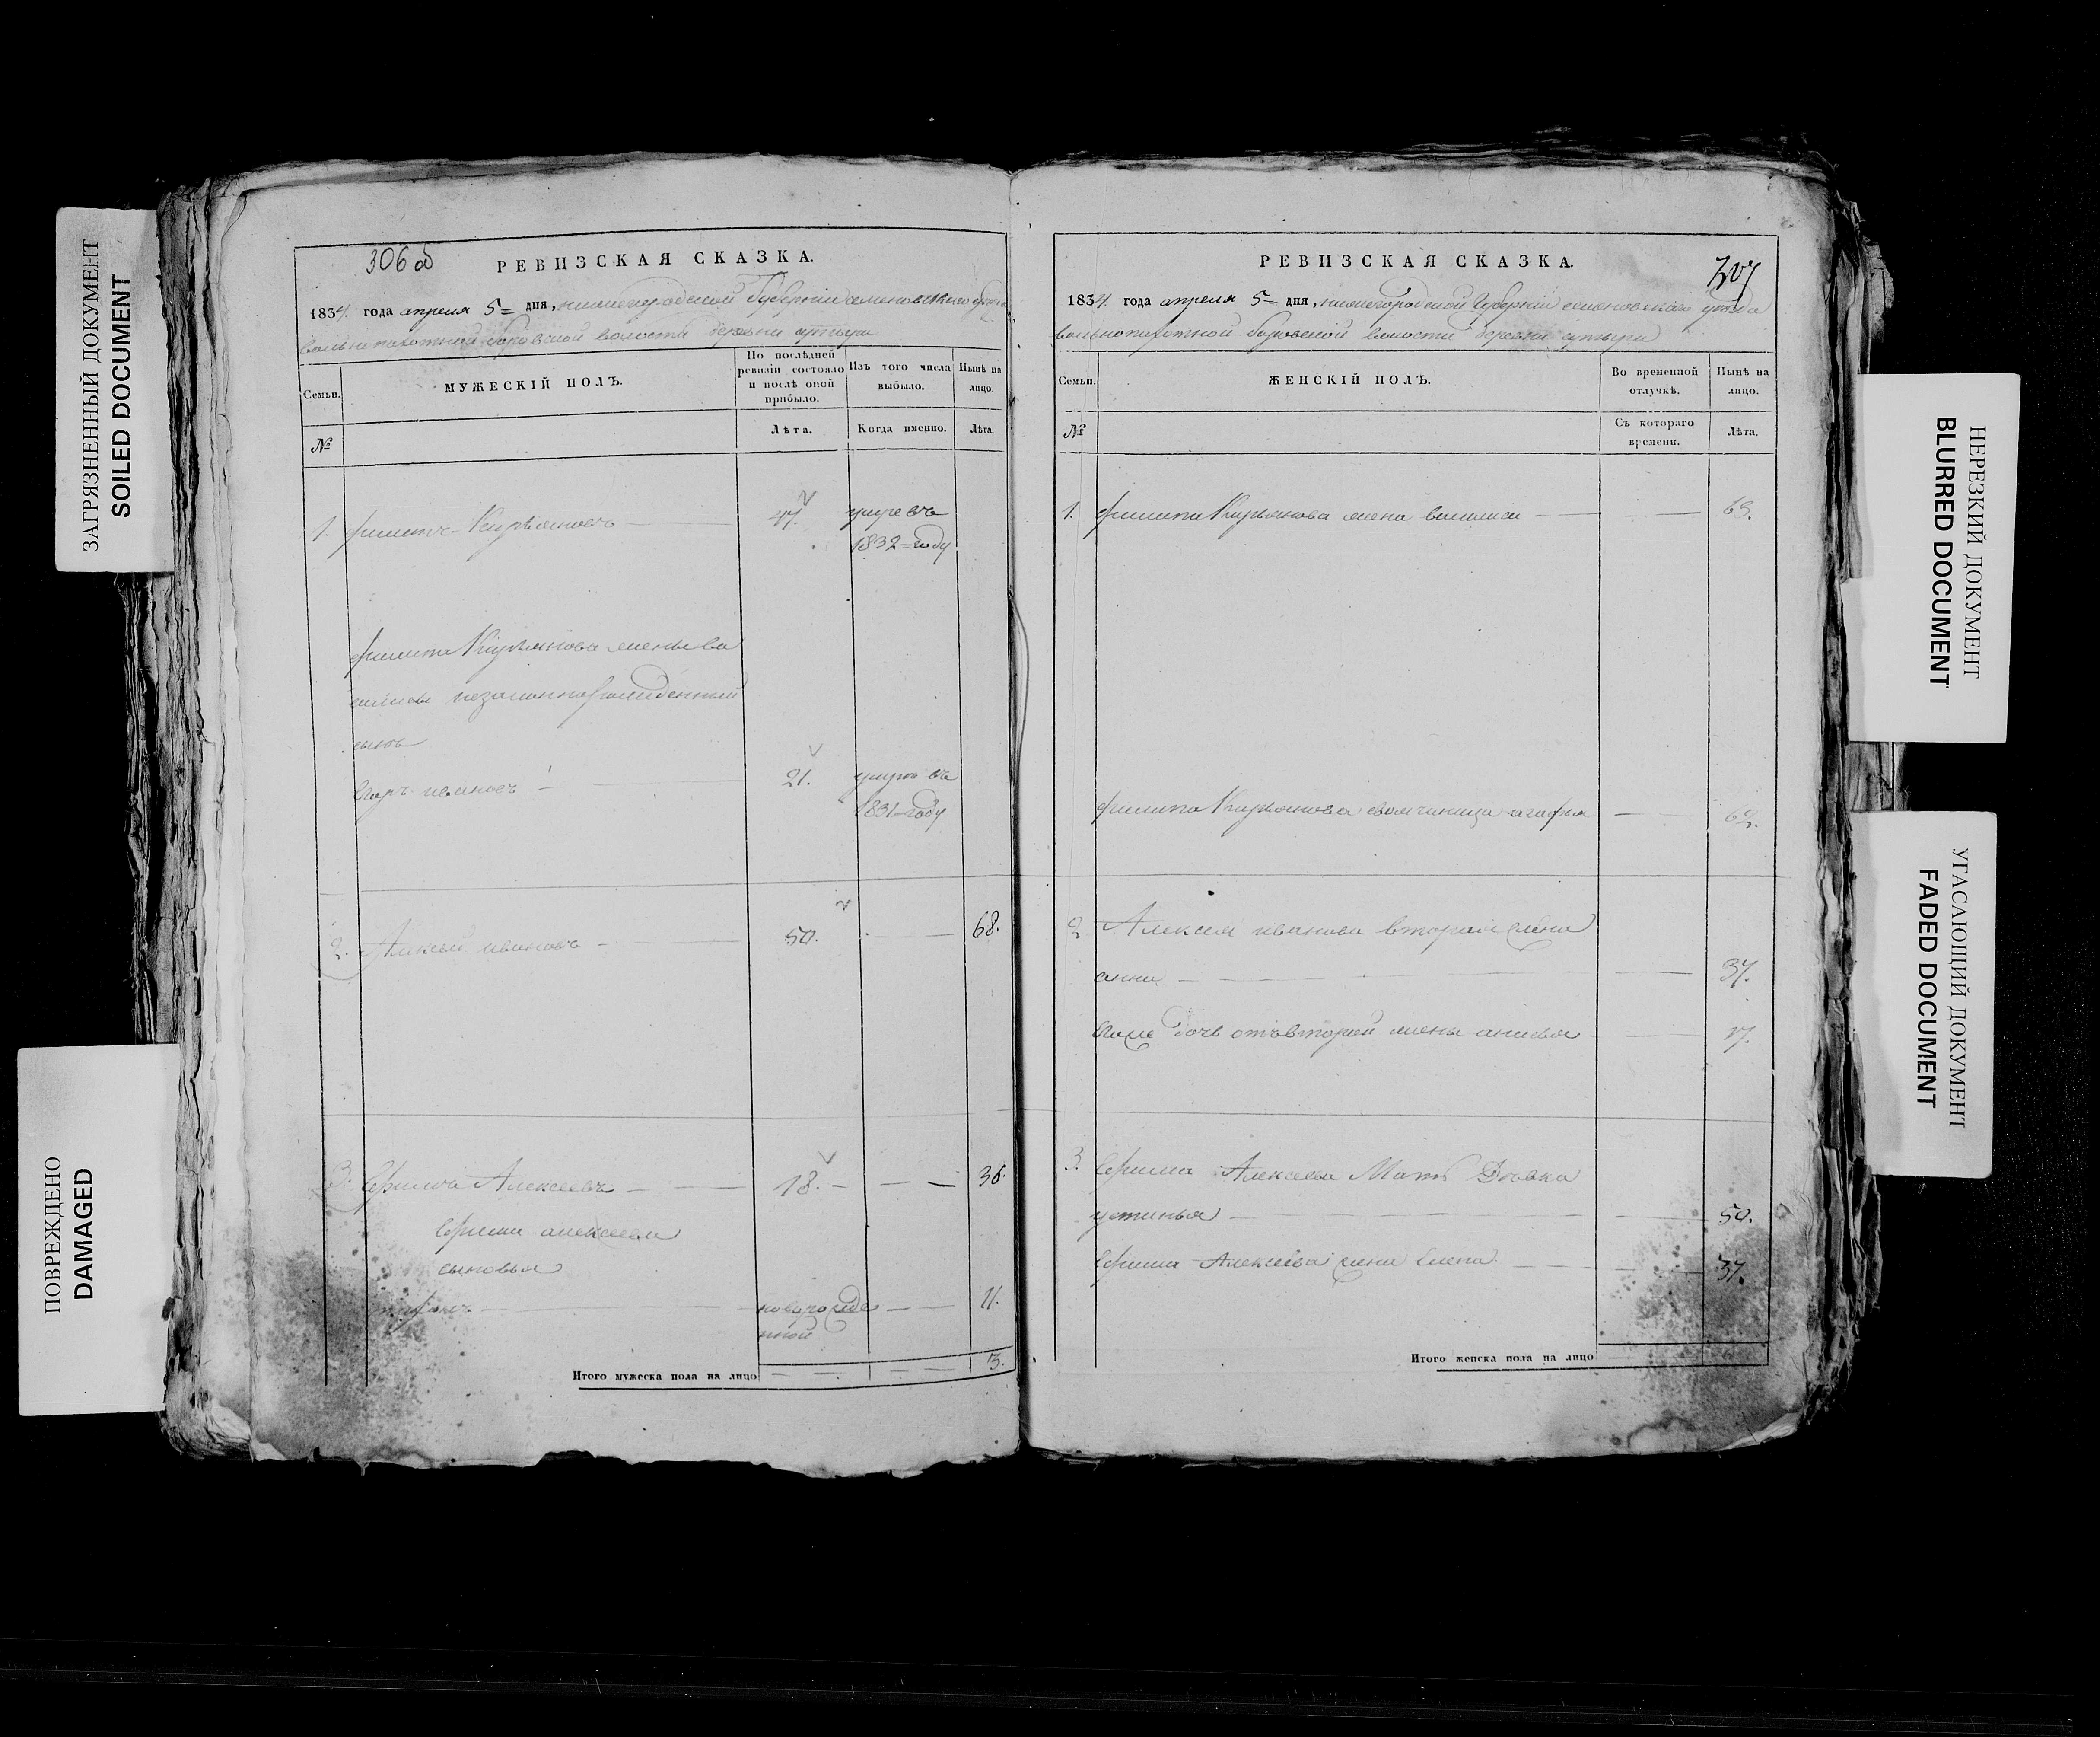 ЗАГРЯЗНЕННЫЙ ДОКУМЕНТ
SOILED DOCUMENT
ПОВРЕЖДЕНО
DAMAGED
306 об
РЕВИЗСКАЯ СКАЗКА.
1834 года апреля 5 дня, нижегородской губернии семеновского уезда
вольнопахотной боровской волости деревни
Семьи.
МУЖЕСКІЙ ПОЛЪ.
По послѣдней ревизіи состояло и послѣ оной прибыло.
Изъ того числа выбыло.
Нынѣ на лицо.
№
Лѣта.
Когда именно.
Лѣта.
1. филипъ Кирьяновъ 47. умре въ
1832 году
филипа Кирьянова жены ва
силисы незаконнорожденный
сынъ
ивановъ 21. умре въ
1831 году
2. Алексей ивановъ 50. 68.
3. Ефимъ Алексеевъ 18. 36.
Ефима алексеева
сыновья
новорожде 11.
нной
Итого мужеска пола на лицо 3.
307
РЕВИЗСКАЯ СКАЗКА.
1834 года апреля 5 дня, нижегородской губернии семеновского уезда
вольнопахотной боровской волости деревни
Семьи.
ЖЕНСКІЙ ПОЛЪ.
Во временной отлучкѣ.
Нынѣ на лицо.
№
Съ котораго времени.
Лѣта.
1. филипа Кирьянова жена василиса
филипа Кирьянова агафья
2. Алексея иванова вторая жена
анна 37.
дочь отъ второй жены анисья
3. Ефима Алексеева Мать вдовка
устинья 50.
Ефима Алексеева жена Елена 37.
Итого женска пола на лицо
НЕРЕЗКИЙ ДОКУМЕНТ
BLURRED DOCUMENT
УГАСАЮЩИЙ ДОКУМЕНТ
FADED DOCUMENT